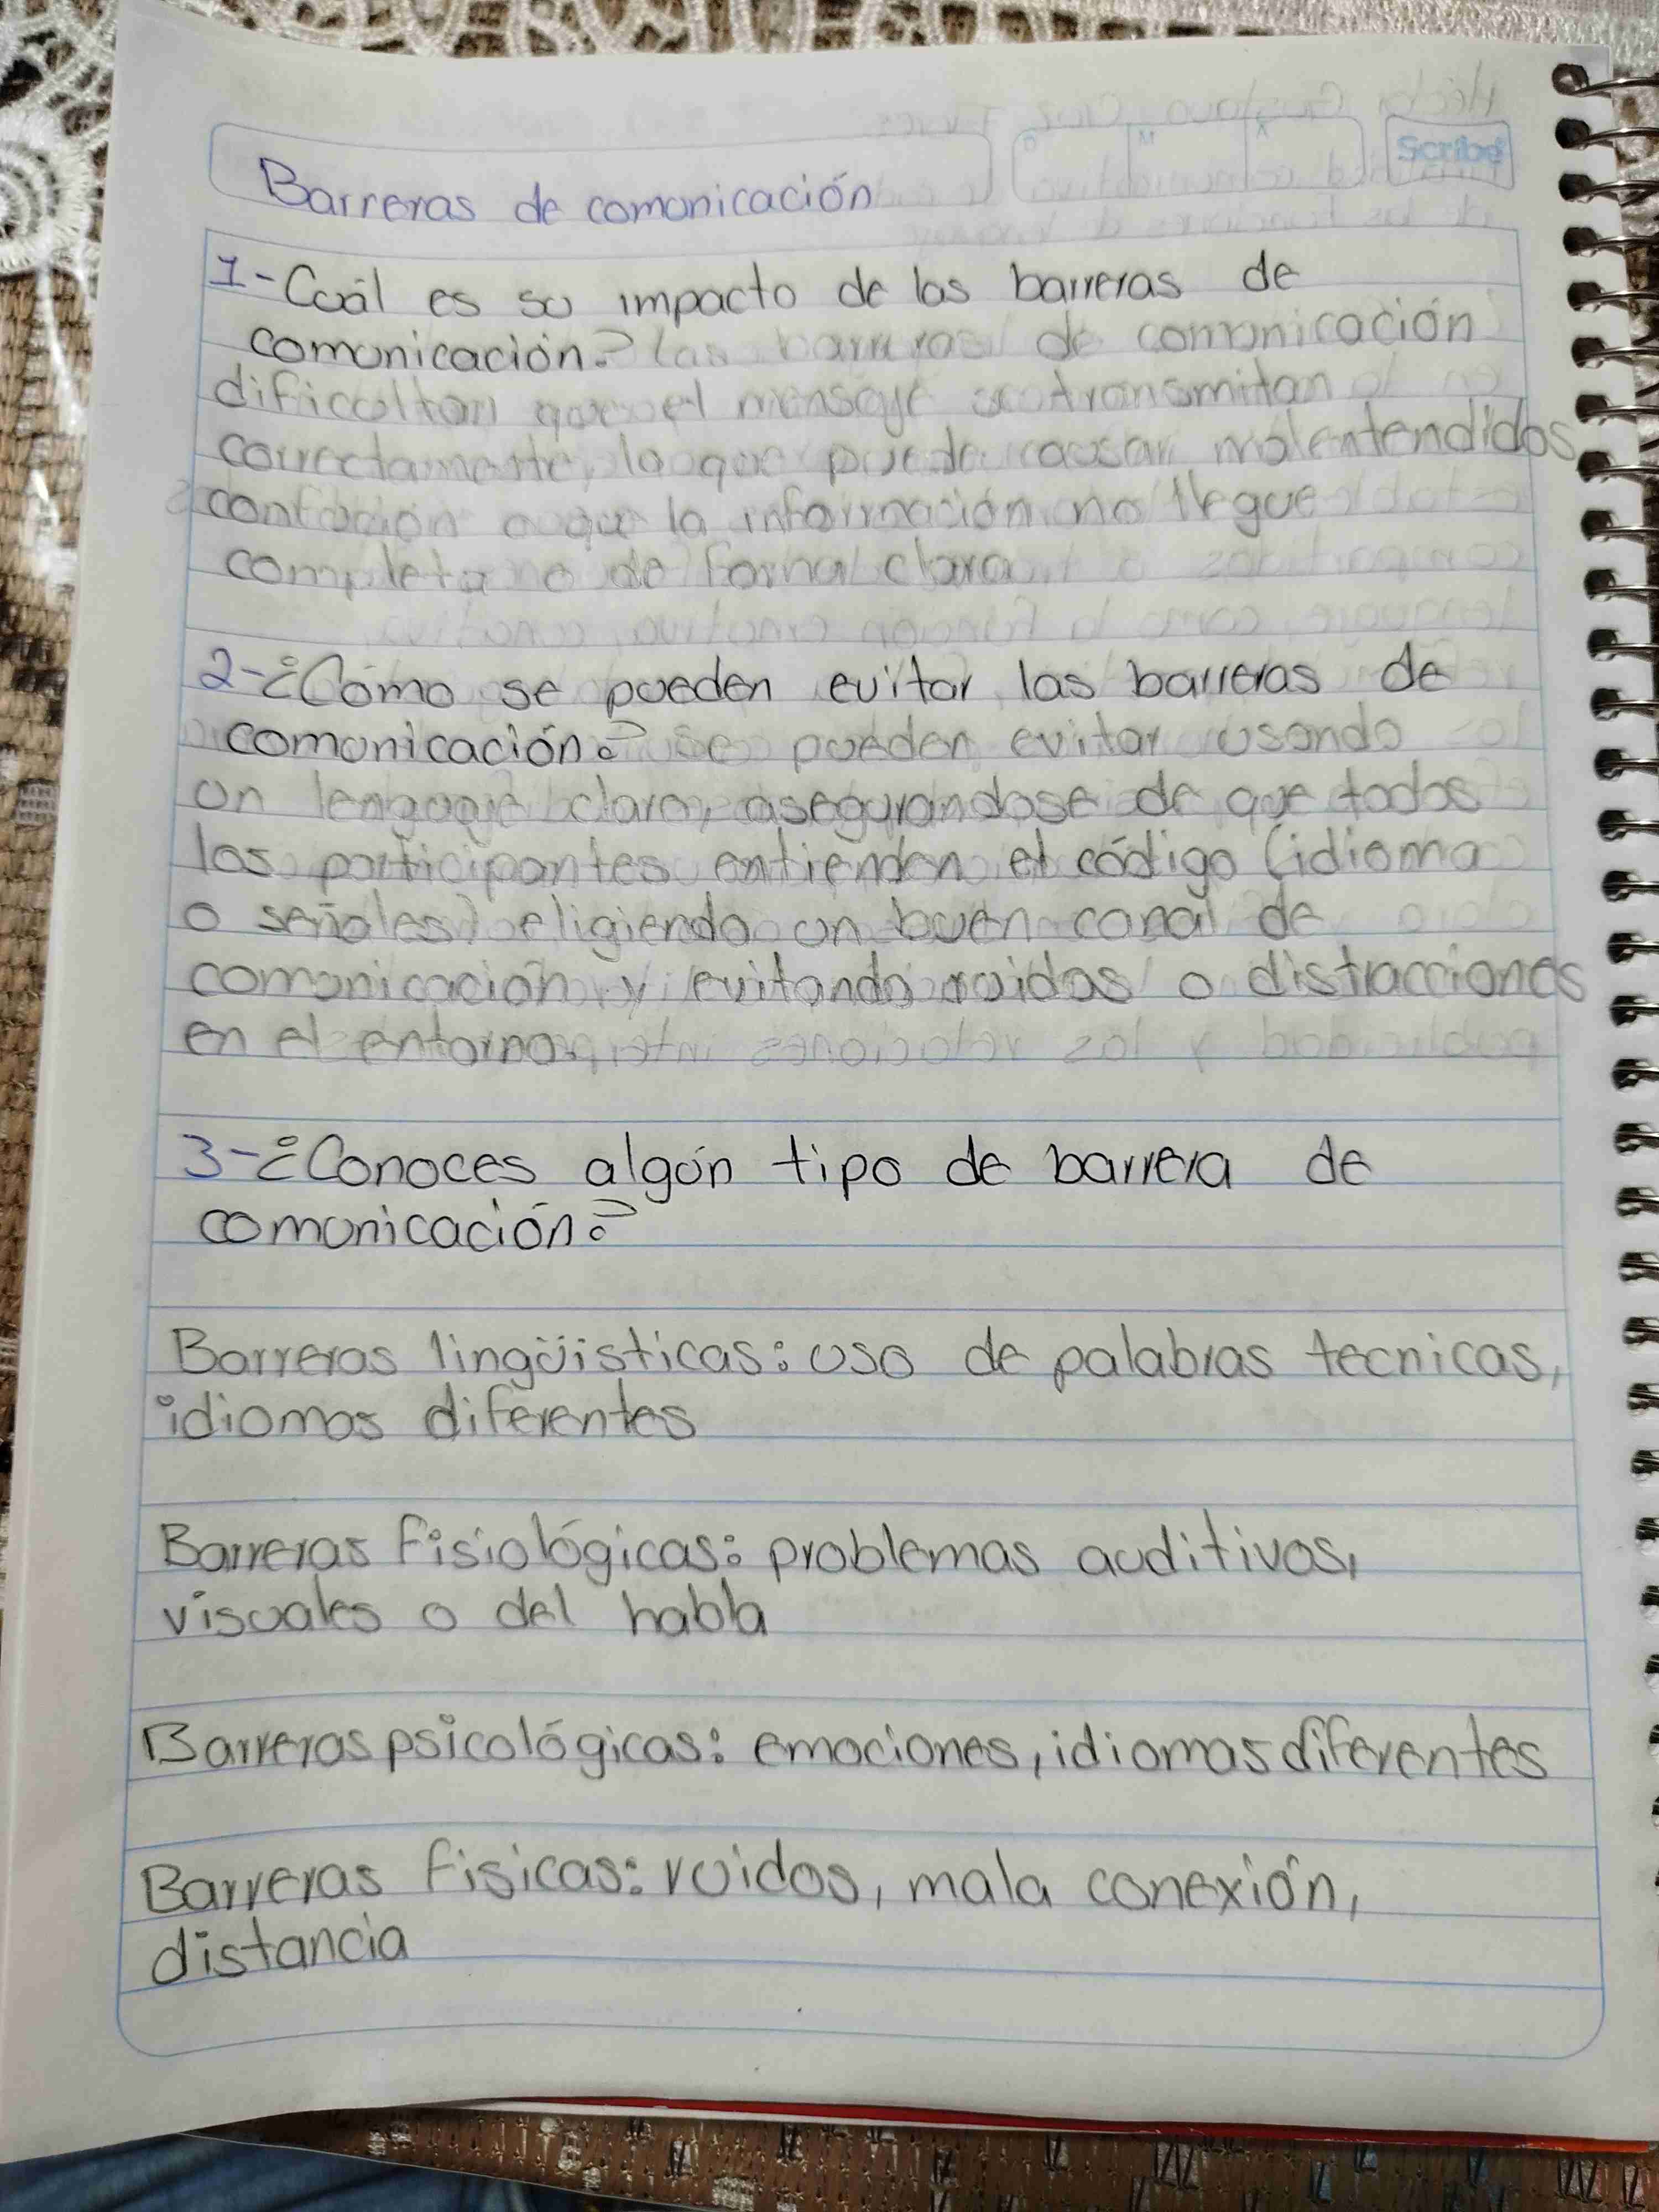 Scribe
D M A
Barreras de comunicación
1-Cuál es su impacto de las barreras de
comunicación? las barreras de comunicación
dificultan que el mensaje se transmitan
correctamente, lo que puede causar malentendidos
confusión o que la información no llegue
completa o de forma clara
2-¿Cómo se pueden evitar las barreras de
comunicación? se pueden evitar usando
un lenguaje claro, asegurandose de que todos
los participantes entienden el código (idioma
o señales) eligiendo un buen canal de
comunicación y evitando ruidos o distracciones
en el entorno.
3-¿Conoces algún tipo de barrera de
comunicación?
Barreras lingüisticas: uso de palabras tecnicas,
idiomas diferentes
Barreras fisiológicas: problemas auditivos,
visuales o del habla
Barreras psicológicas: emociones, idiomas diferentes
Barreras fisicas: ruidos, mala conexión,
distancia